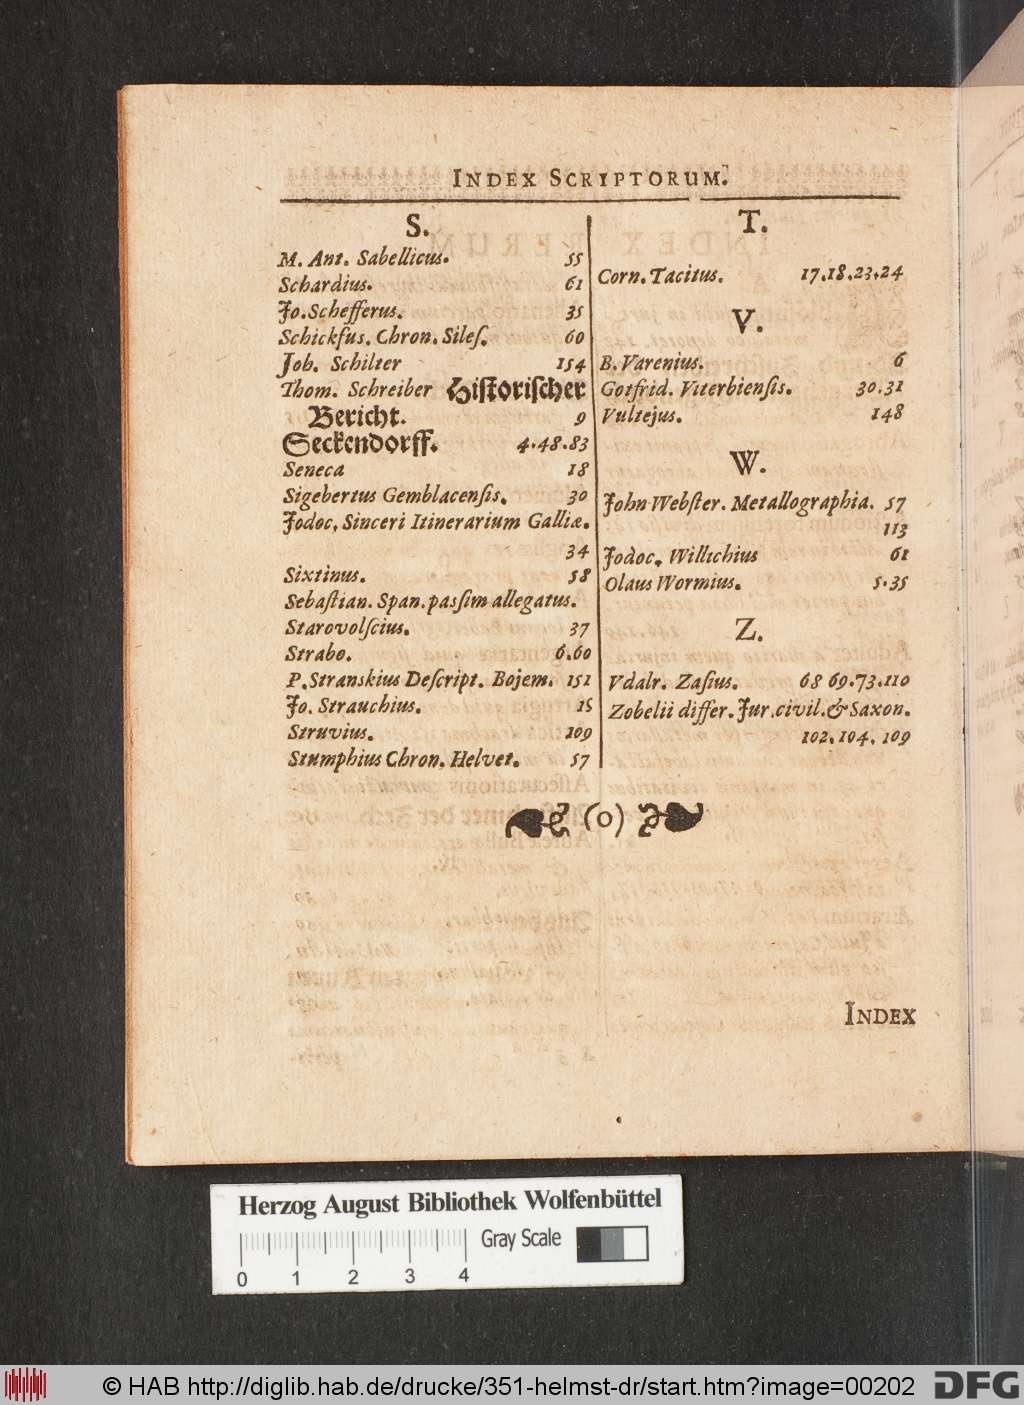 INDEX SCRIPTORUM.
S.
M. Ant. Sabellicus. 55
Schardius. 61
Jo. Schefferus. 35
Schickfus. Chron. Silef. 60
Joh. Schilter 154
Thom. Schreiber Historiſcher
Bericht. 9
Seckendorff. 4.48.83
Seneca 18
Sigebertus Gemblacenſis. 30
Jodoc. Sinceri Itinerarium Galliæ.
34
Sixtinus. 58
Sebaſtian. Span. paſſim allegatus.
Starovolſcius. 37
Strabo. 6.60
P. Stranskius Deſcript. Bojem. 151
Jo. Strauchius. 15
Struvius. 109
Stumphius Chron. Helvet. 57
T.
Corn. Tacitus. 17.18.23.24
V.
B. Varenius. 6
Gotfrid. Viterbienſis. 30.31
Vultejus. 148
W.
John Webſter. Metallographia. 57
113
Jodoc. Willichius 61
Olaus Wormius. 5.35
Z.
Vdalr. Zaſius. 68 69.73.110
Zobelii differ. Jur. civil. & Saxon.
102. 104. 109
(o)
INDEX
Herzog August Bibliothek Wolfenbüttel
Gray Scale
0 1 2 3 4
© HAB http://diglib.hab.de/drucke/351-helmst-dr/start.htm?image=00202
DFG